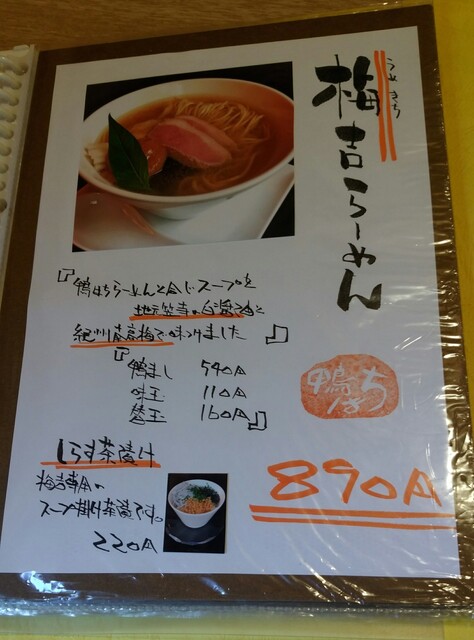 うめきち
梅吉らーめん
『鴨はちらーめんと合じスープを
地元笠寺の白醤油と
紀州南高梅で味つけしました』
『鴨まし 540円
味玉 110円
替玉 160円』
鴨はち
しらす茶漬け
梅吉専用の
スープ掛け茶漬です。
220円
890円